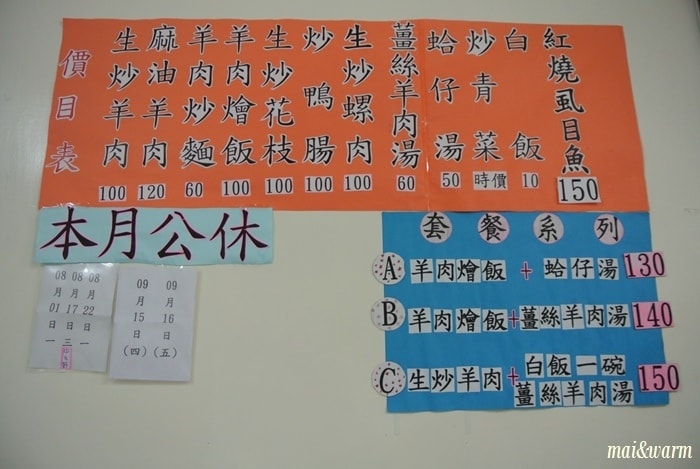 價目表
生炒羊肉 100
麻油羊肉 120
羊肉炒麵 60
羊肉燴飯 100
生炒花枝 100
炒鴨腸 100
生炒螺肉 100
薑絲羊肉湯 60
蛤仔湯 50
炒青菜 時價
白飯 10
紅燒虱目魚 150
本月公休
08月01日一
08月17日三
08月22日一
09月15日(四)
09月16日(五)
套餐系列
A 羊肉燴飯+蛤仔湯 130
B 羊肉燴飯+薑絲羊肉湯 140
C 生炒羊肉+白飯一碗薑絲羊肉湯 150
mai&warm